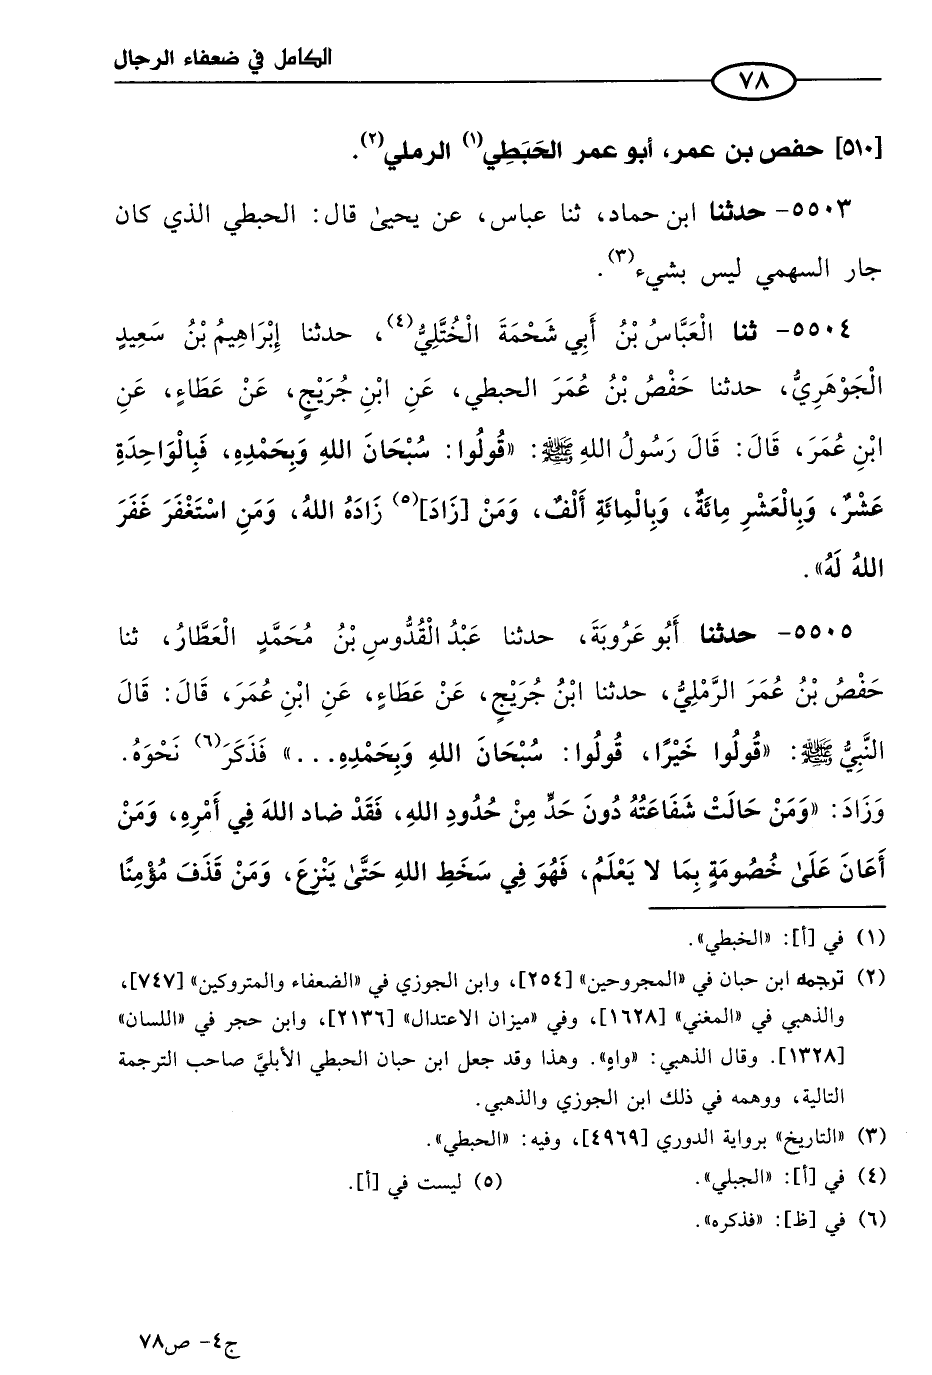 الكامل في ضعفاء الرجال
٧٨
[٥١٠] حفص بن عمر، أبو عمر الحَبَطِي(١) الرملي(٢).
٥٥٠٣- حدثنا ابن حماد، ثنا عباس، عن يحيىٰ قال: الحبطي الذي كان
جار السهمي ليس بشيء(٣).
٥٥٠٤- ثنا الْعَبَّاسُ بْنُ أَبِي شَحْمَةَ الْخُتَّلِيُّ(٤)، حدثنا إِبْرَاهِيمُ بْنُ سَعِيدٍ
الْجَوْهَرِيُّ، حدثنا حَفْصُ بْنُ عُمَرَ الحبطي، عَنِ ابْنِ جُرَيْجٍ، عَنْ عَطَاءٍ، عَنِ
ابْنِ عُمَرَ، قَالَ: قَالَ رَسُولُ اللهِ ﷺ: «قُولُوا: سُبْحَانَ اللهِ وَبِحَمْدِهِ، فَبِالْوَاحِدَةِ
عَشْرٌ، وَبِالْعَشْرِ مِائَةٌ، وَبِالْمِائَةِ أَلْفٌ، وَمَنْ [زَادَ](٥) زَادَهُ اللهُ، وَمَنِ اسْتَغْفَرَ غَفَرَ
اللهُ لَهُ».
٥٥٠٥- حدثنا أَبُو عَرُوبَةَ، حدثنا عَبْدُ الْقُدُّوسِ بْنُ مُحَمَّدٍ الْعَطَّارُ، ثنا
حَفْصُ بْنُ عُمَرَ الرَّمْلِيُّ، حدثنا ابْنُ جُرَيْجٍ، عَنْ عَطَاءٍ، عَنِ ابْنِ عُمَرَ، قَالَ: قَالَ
النَّبِيُّ ﷺ: «قُولُوا خَيْرًا، قُولُوا: سُبْحَانَ اللهِ وَبِحَمْدِهِ...» فَذَكَرَ(٦) نَحْوَهُ.
وَزَادَ: «وَمَنْ حَالَتْ شَفَاعَتُهُ دُونَ حَدٍّ مِنْ حُدُودِ اللهِ، فَقَدْ ضاد اللهَ فِي أَمْرِهِ، وَمَنْ
أَعَانَ عَلَىٰ خُصُومَةٍ بِمَا لا يَعْلَمُ، فَهُوَ فِي سَخَطِ اللهِ حَتَّىٰ يَنْزِعَ، وَمَنْ قَذَفَ مُؤْمِنًا
(١) في [أ]: «الخبطي».
(٢) ترجمه ابن حبان في «المجروحين» [٢٥٤]، وابن الجوزي في «الضعفاء والمتروكين» [٧٤٧]،
والذهبي في «المغني» [١٦٢٨]، وفي «ميزان الاعتدال» [٢١٣٦]، وابن حجر في «اللسان»
[١٣٢٨]. وقال الذهبي: «واهٍ». وهذا وقد جعل ابن حبان الحبطي الأبليَّ صاحب الترجمة
التالية، ووهمه في ذلك ابن الجوزي والذهبي.
(٣) «التاريخ» برواية الدوري [٤٩٦٩]، وفيه: «الحبطي».
(٤) في [أ]: «الجبلي». (٥) ليست في [أ].
(٦) في [ظ]: «فذكره».
ج٤- ص٧٨